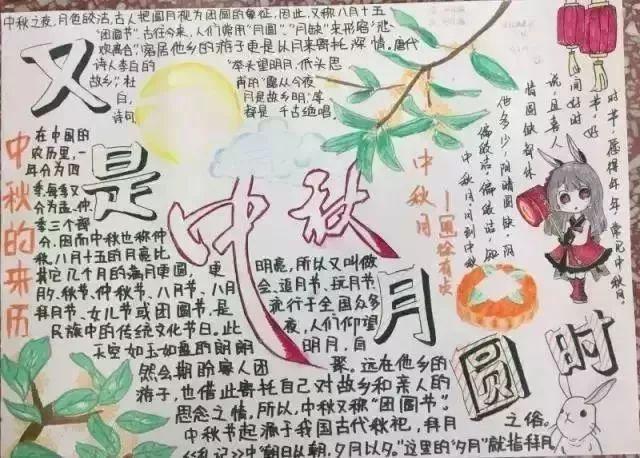 中秋之夜,月色皎洁,古人把圆月视为团圆的象征,因此,又称八月十五
"团圆节".古往今来,人们常用"月圆""月缺"来形容"悲
欢离合",客居他乡的游子更是以月来寄托深情。唐代
诗人李白的 "举头望明月,低头思
故乡",杜 甫的"露从今夜
白, 月是故乡明"等
诗句 都是千古绝唱.
又
是
中秋
月
圆
时
中秋的来历
在中国的
农历里,一
年分为四
季,每季又
分为孟、仲、
季三个部
分,因而中秋也称仲
秋,八月十五的月亮比
其它几个月的满月更圆, 更 明亮,所以又叫做
月夕、秋节、仲秋节、八月节、八月 会、追月节、玩月节、
拜月节、女儿节或团圆节,是 流行于全国众多
民族中的传统文化节日。此 夜,人们仰望
天空如玉如盘的朗朗 明月,自
然会期盼家人团 聚。远在他乡的
游子,也借此寄托自己对故乡和亲人的
思念之情。所以,中秋又称"团圆节"。
中秋节起源于我国古代秋祀,拜月 之俗。
《礼记》中"朝日以朝,夕月以夕。"这里的"夕月"就指拜月
中秋月
—徐有贞
中秋月,月到中秋
偏皎洁,偏皎洁,知
他多少,阴晴圆缺,阴
晴圆缺都休
说,且喜人
间好时
节,好
时节,愿得年年,常见中秋月。